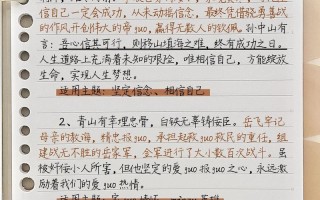 信自己一定会成功，从未动摇信念，最终凭借骁勇善战
的作风开创伟大的帝guo，赢得无数人的钦佩。孙中山有
言：吾心信其可行，则移山填海之难，终有成功之日。
人生道路上充满着未知的艰险，唯相信自己，方能绽放
生命，实现人生梦想。
适用主题：坚定信念、相信自己
2、青山有幸埋忠骨，白铁无辜铸佞臣。岳飞牢记
母亲的教诲，精忠报guo，承担起救guo救民的重任，组
建战无不胜的岳家军，全军进行了大小数百次战斗。虽
被奸佞小人所害，但他坚定的爱guo报guo之心，永远激
励着我们的爱guo热情。